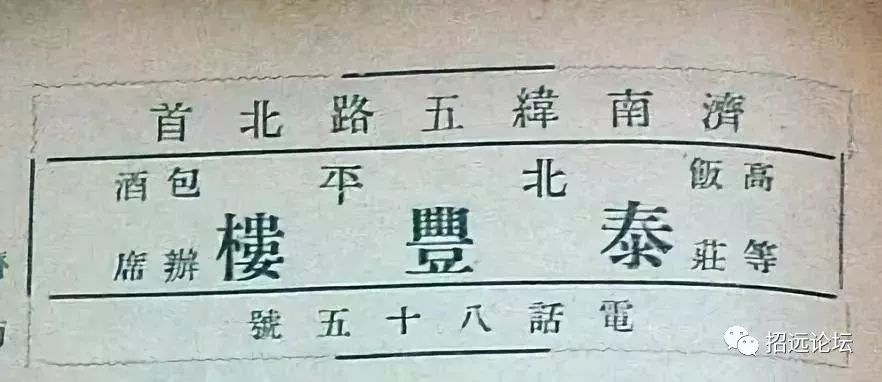 濟南緯五路北首
高等飯莊
北平
泰豐樓
包辦酒席
電話八十五號
招远论坛